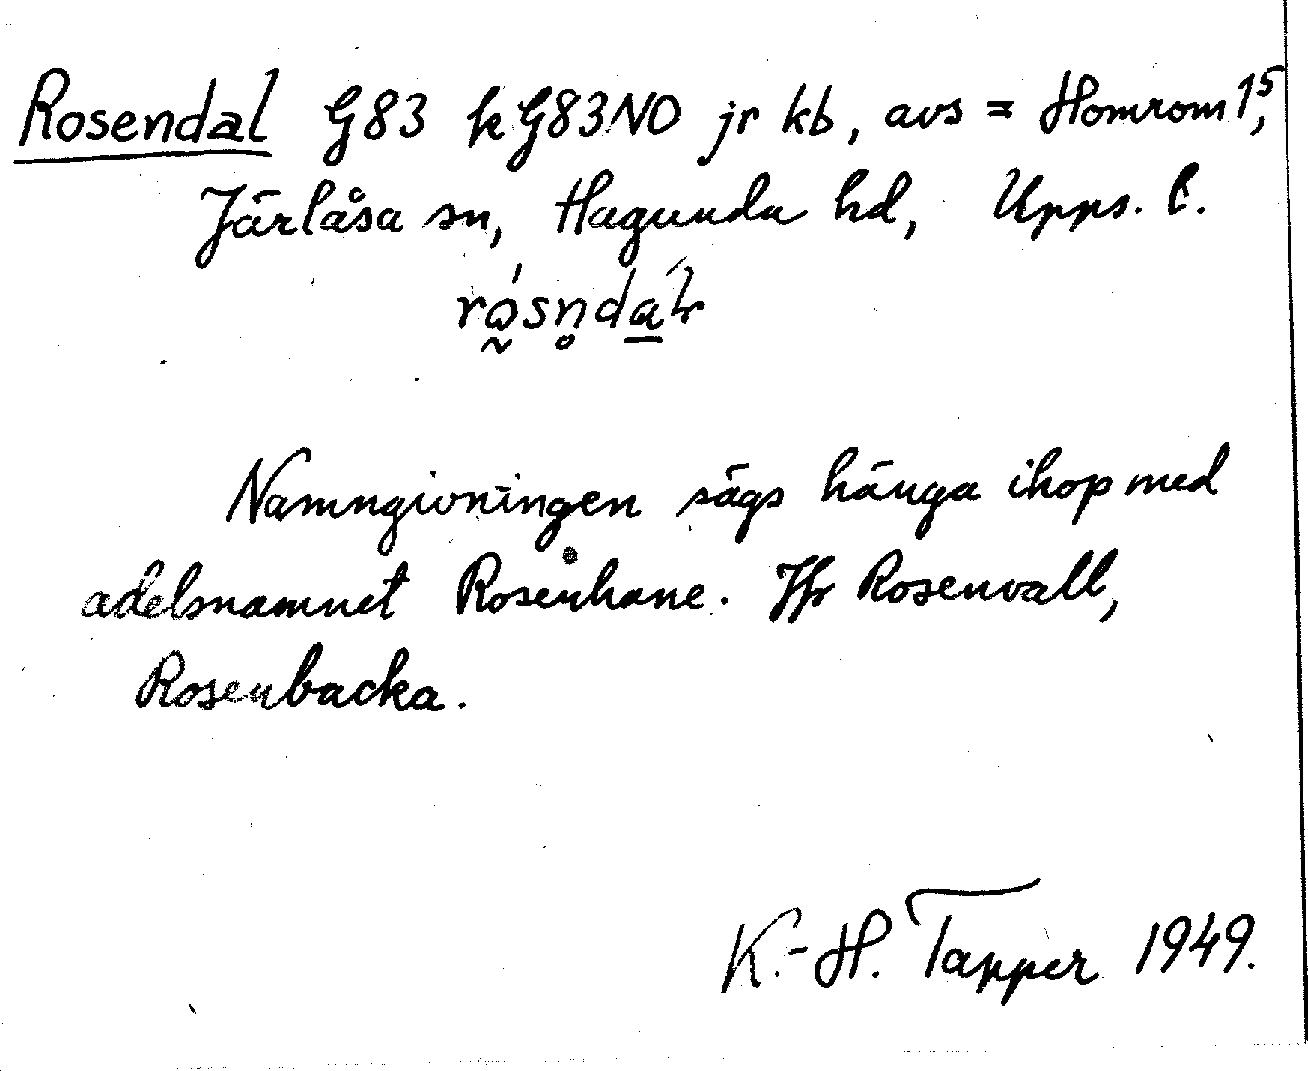 Rosendal G83 k G83NO jr kb, avs = Homrom 1⁵,
Järlåsa sn, Hagunda hd, Upps. l.
Namngivningen sägs hänga ihop med
adelsnamnet Rosenhane. Jfr Rosenvall,
Rosenbacka.
K.-H. Tapper 1949.